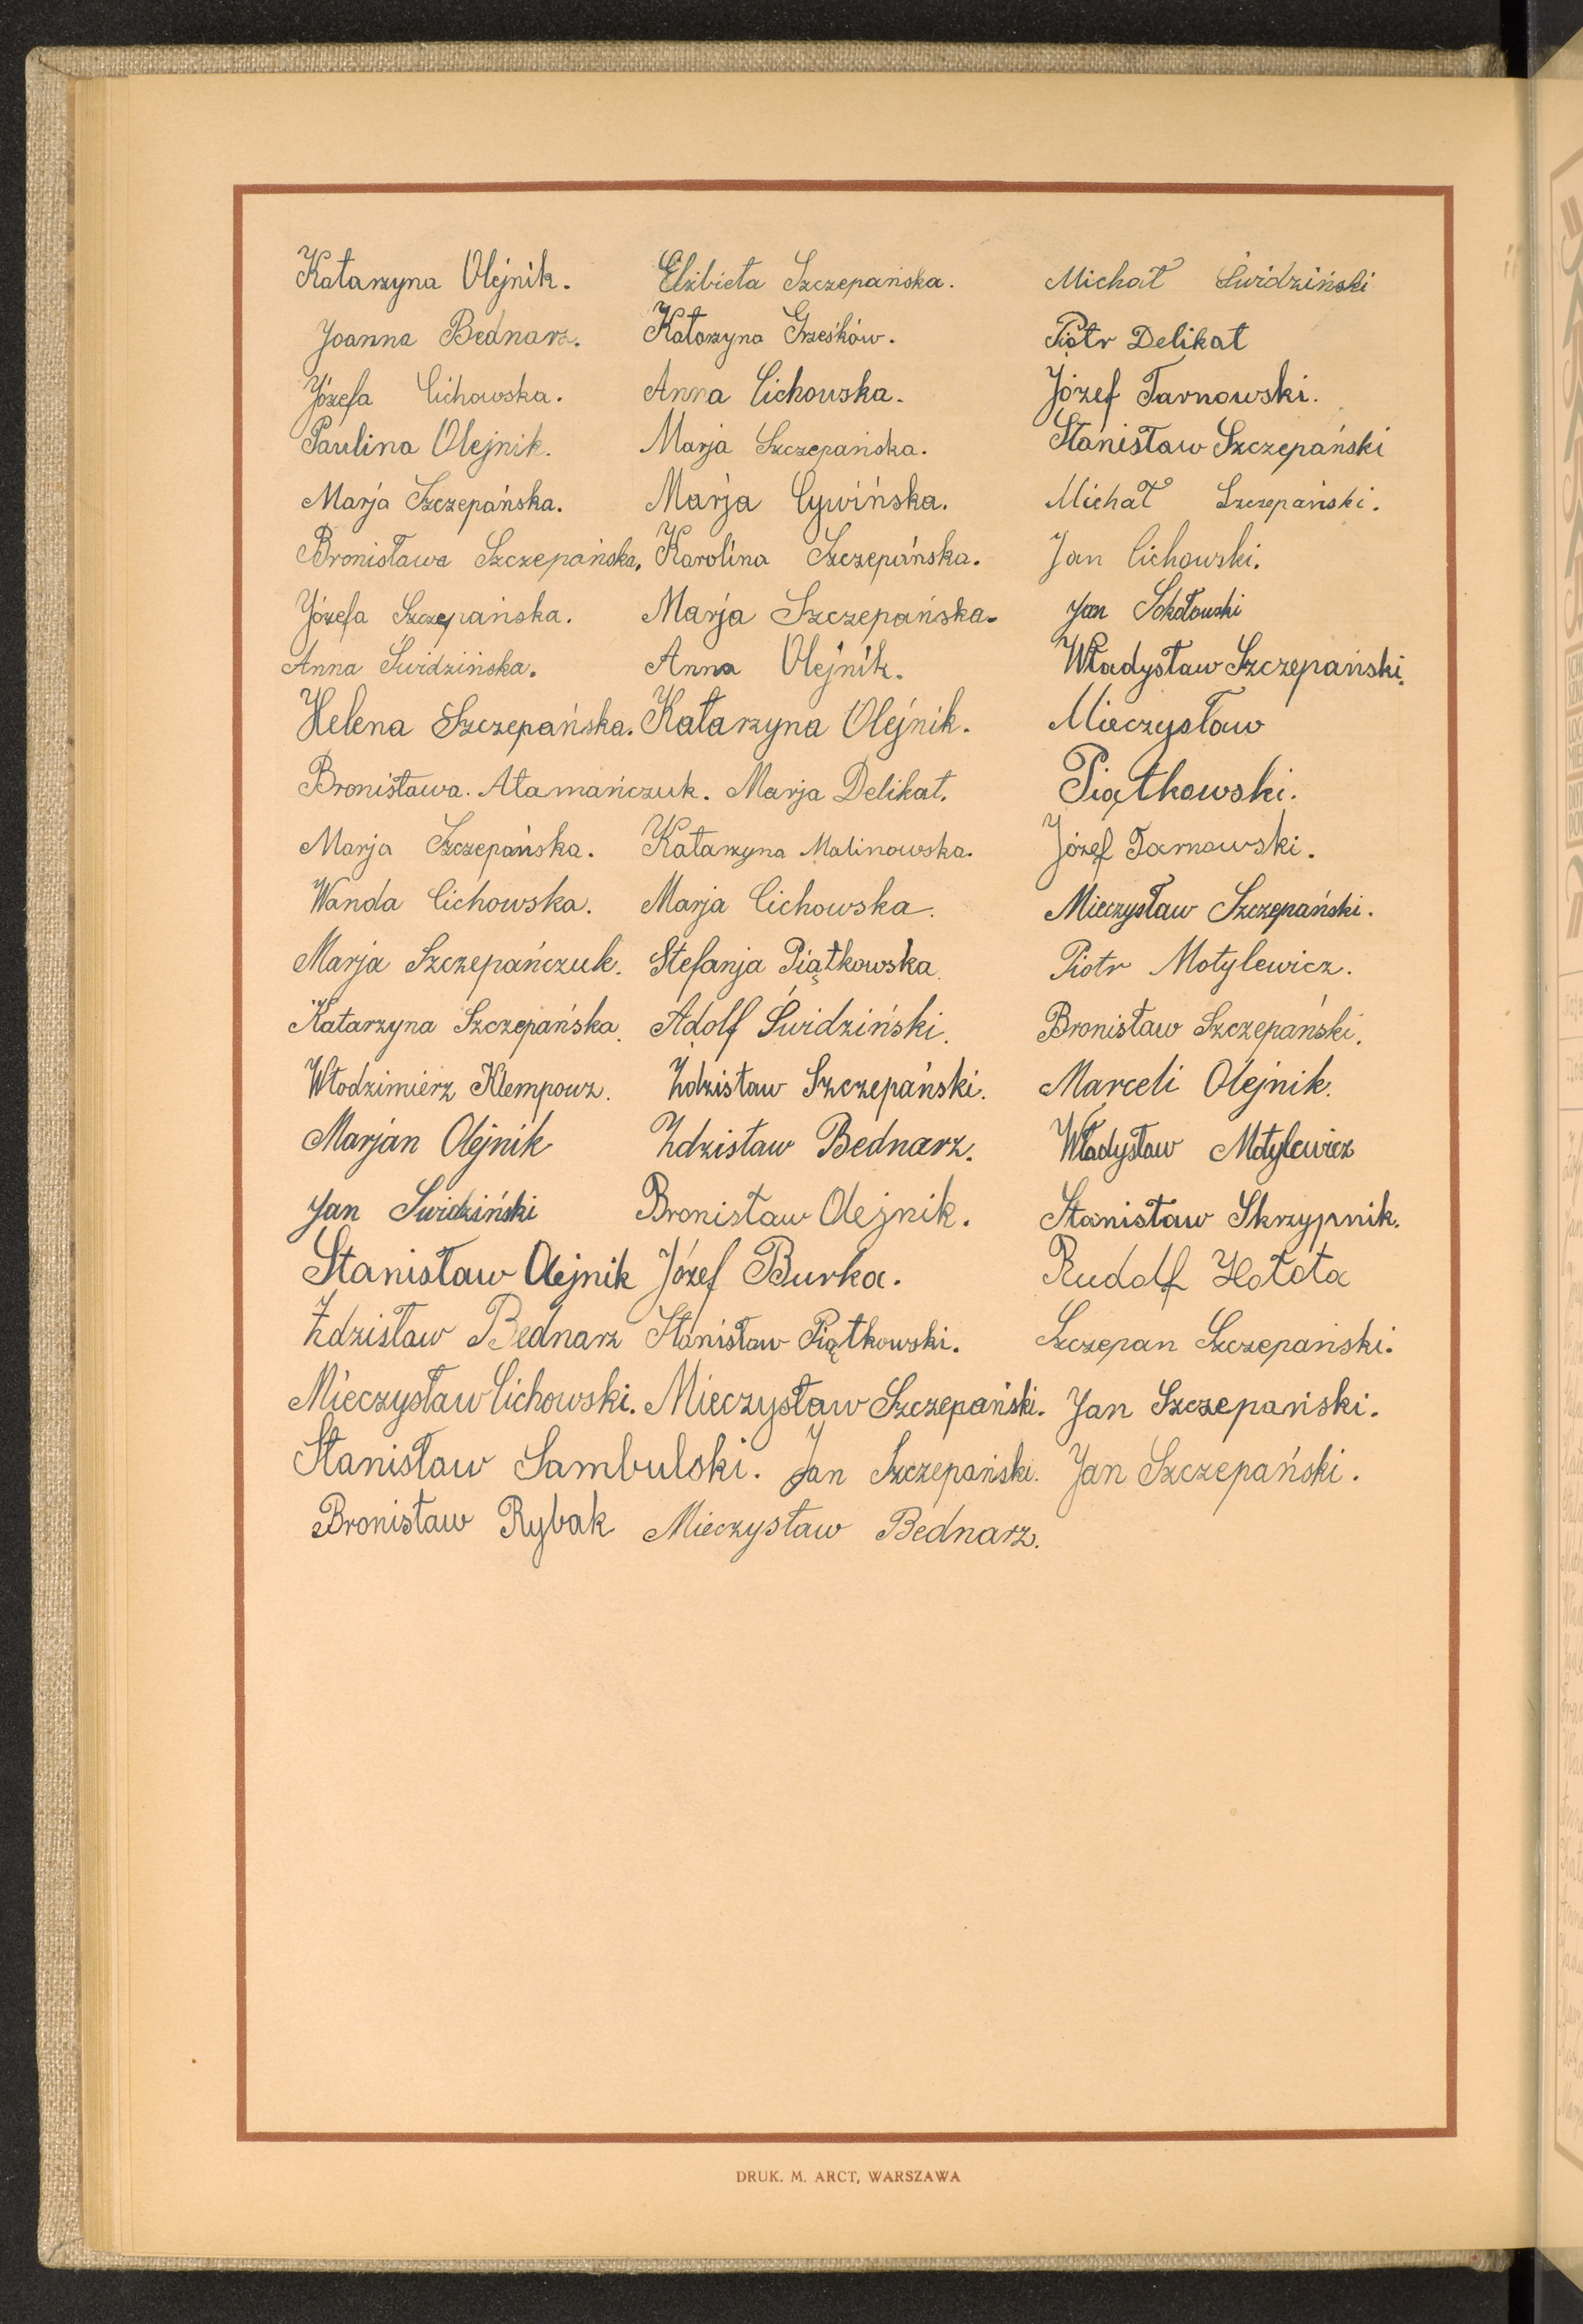 Katarzyna Olejnik. Elżbieta Szczepańska. Michał Świdziński
Joanna Bednarz. Katarzyna Grześków. Piotr Delikat
Józefa Cichowska. Anna Cichowska. Józef Tarnowski.
Paulina Olejnik. Marja Szczepańska. Stanisław Szczepański
Marja Szczepańska. Marja Cywińska. Michał Szczepański.
Bronisława Szczepańska. Karolina Szczepańska. Jan Cichowski.
Józefa Szczepańska. Marja Szczepańska. Jan Sokołowski
Anna Świdzińska. Anna Olejnik. Władysław Szczepański.
Helena Szczepańska. Katarzyna Olejnik. Mieczysław
Bronisława. Atamańczuk. Marja Delikat. Piątkowski.
Marja Szczepańska. Katarzyna Malinowska. Józef Tarnowski.
Wanda Cichowska. Marja Cichowska. Mieczysław Szczepański.
Marja Szczepańczuk. Stefanja Piątkowska. Piotr Motylewicz.
Katarzyna Szczepańska. Adolf Świdziński. Bronisław Szczepański.
Włodzimierz Klempouz. Zdzisław Szczepański. Marceli Olejnik.
Marjan Olejnik Zdzisław Bednarz. Władysław Motylewicz
Jan Świdziński Bronisław Olejnik. Stanisław Skrzypnik.
Stanisław Olejnik Józef Burka. Rudolf Hołota
Zdzisław Bednarz Stanisław Piątkowski. Szczepan Szczepański.
Mieczysław Cichowski. Mieczysław Szczepański. Jan Szczepański.
Stanisław Sambulski. Jan Szczepański. Jan Szczepański.
Bronisław Rybak Mieczysław Bednarz.
DRUK. M. ARCT, WARSZAWA